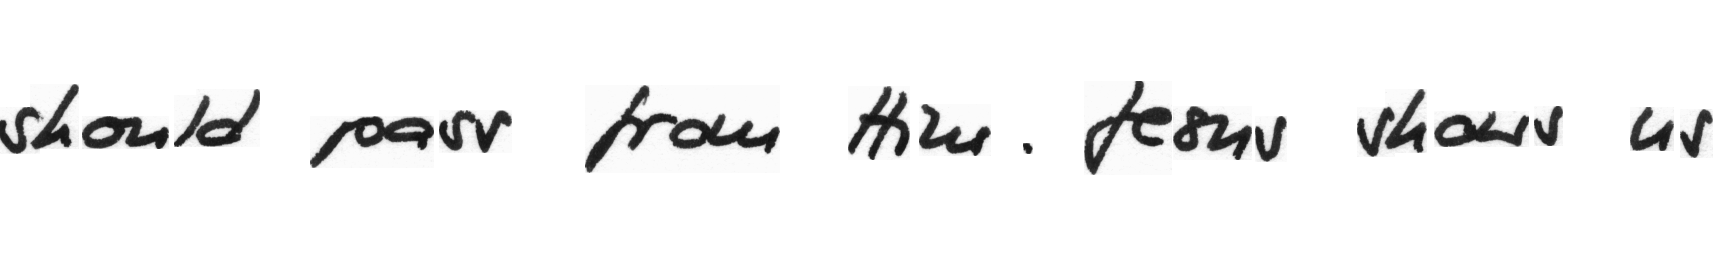 should pass from Him. Jesus shows us